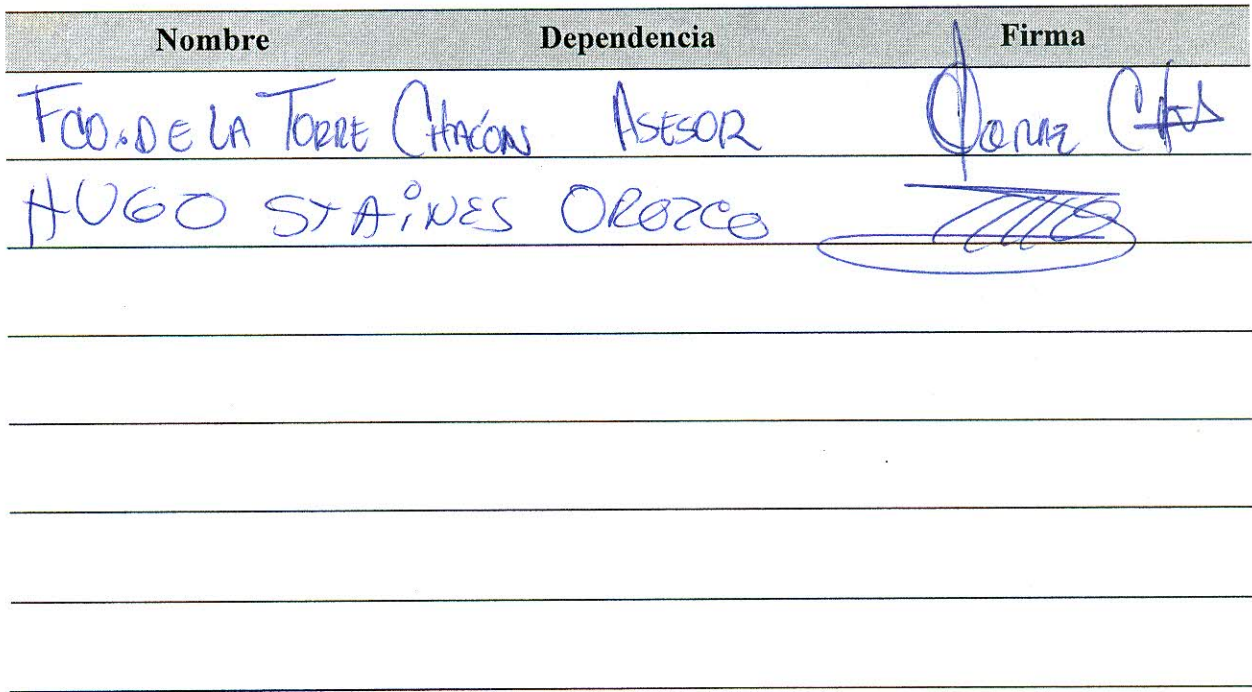 Nombre Dependencia Firma
FCO. DE LA TORRE CHACÓN ASESOR
HUGO STAINES OROZCO